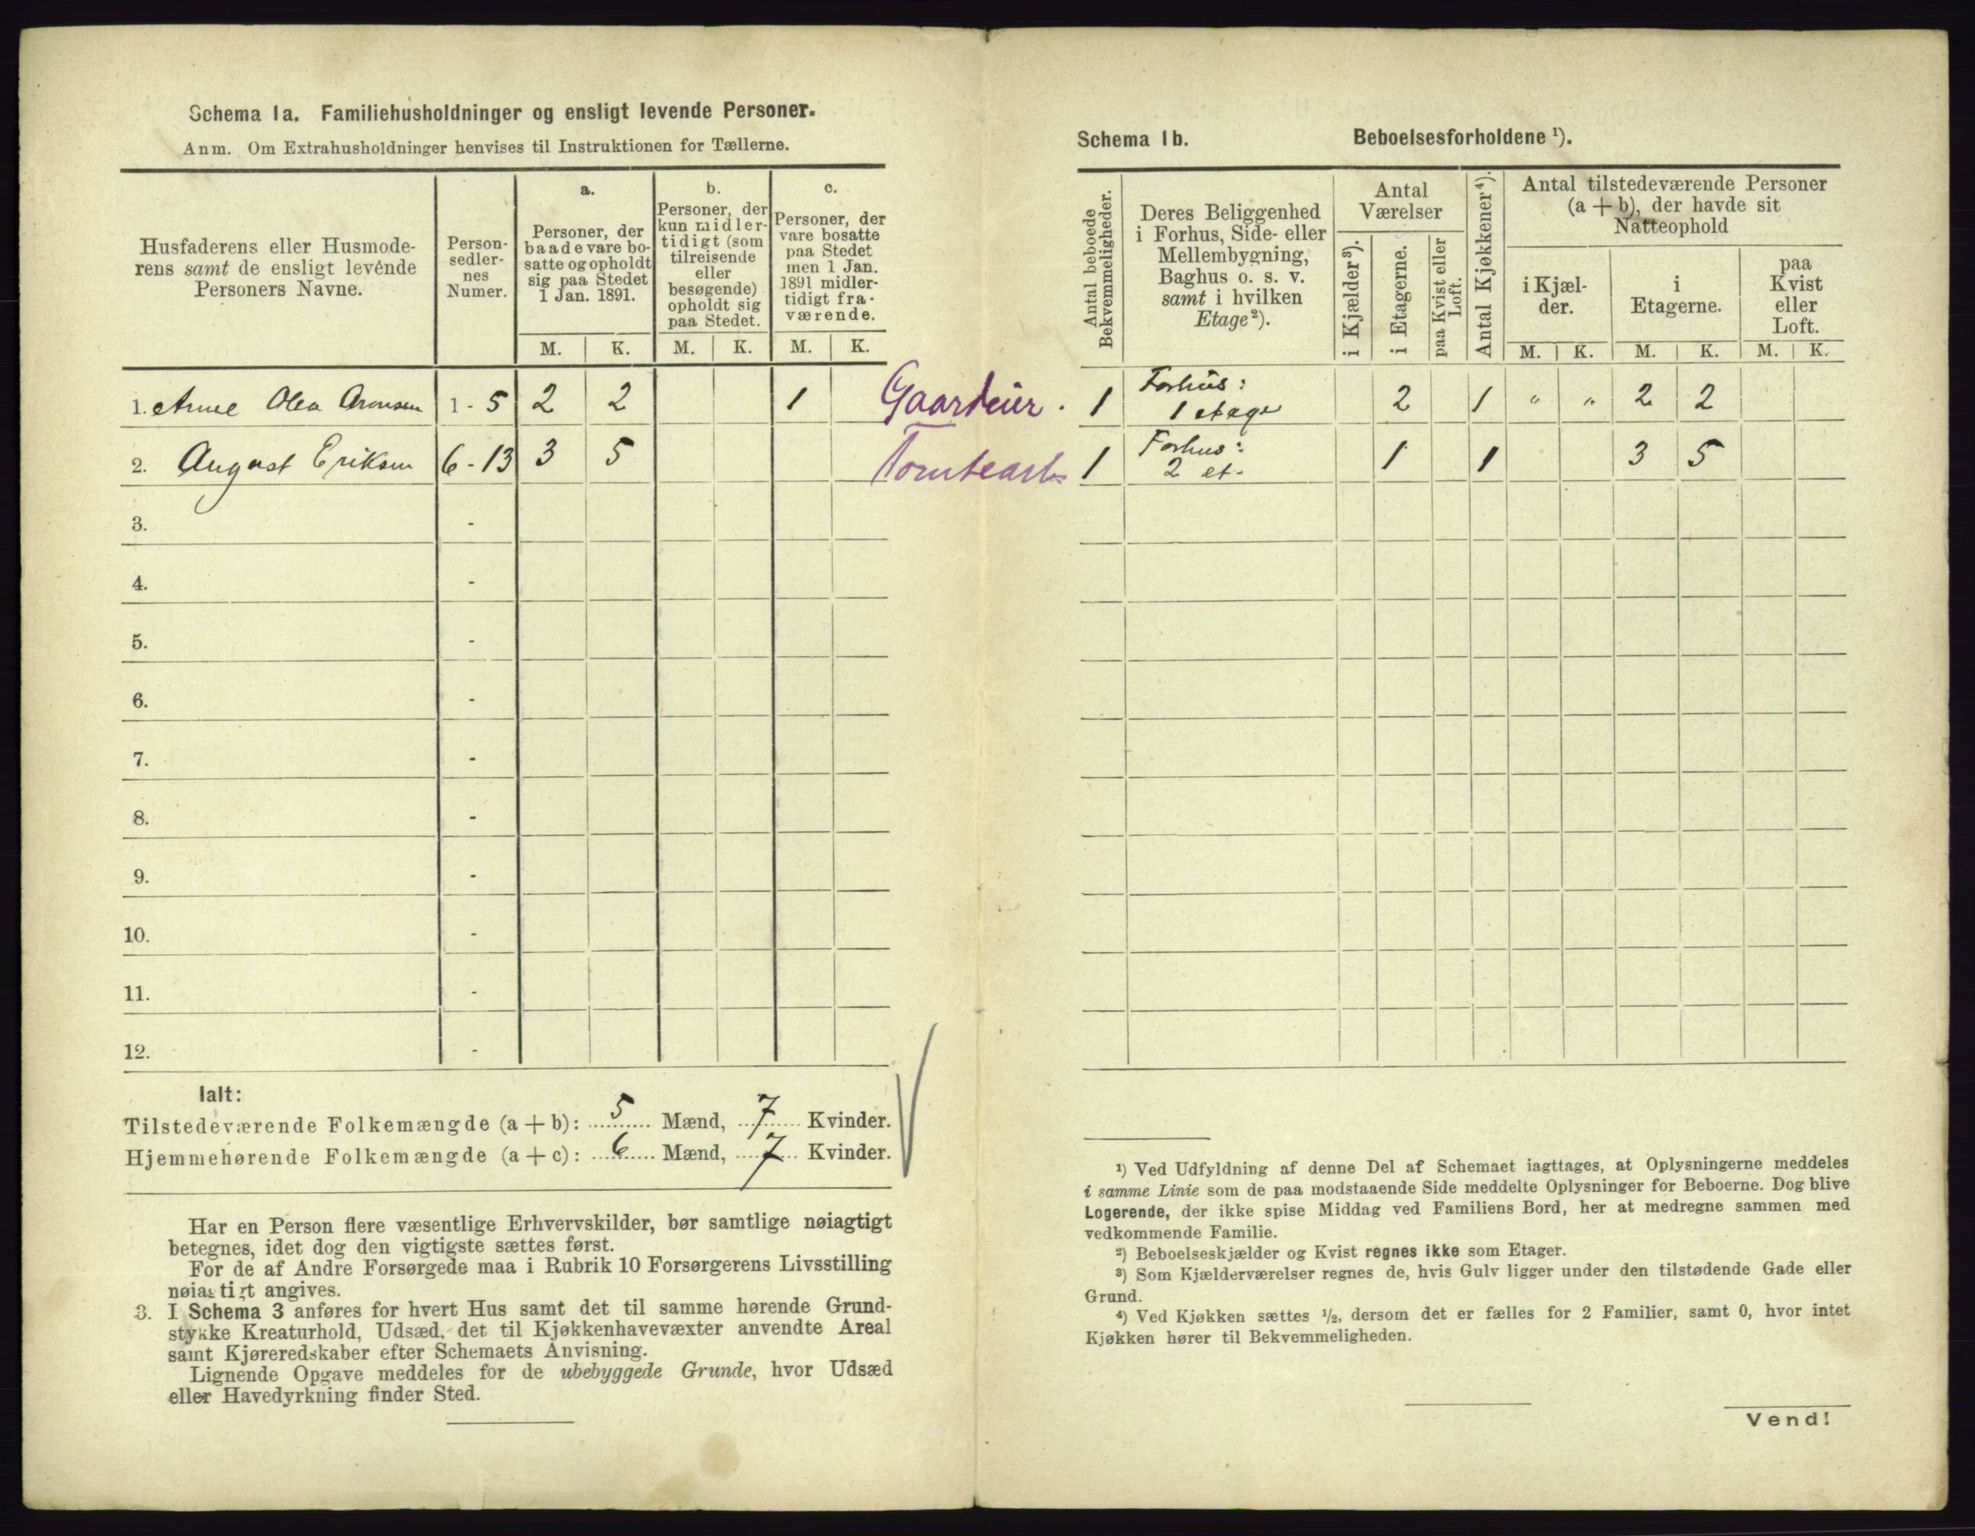 Schema 1a. Familiehusholdninger og ensligt levende Personer.
Anm. Om Extrahusholdninger henvises til Instruktionen for Tællerne.
Husfaderens eller Husmode-
rens samt de ensligt levende
Personers Navne.
Person-
sedler-
nes
Numer.
a.
Personer, der
baade vare bo-
satte og opholdt
sig paa Stedet
1 Jan. 1891.
b.
Personer, der
kun midler-
tidigt (som
tilreisende
eller
besøgende)
opholdt sig
paa Stedet.
c.
Personer, der
vare bosatte
paa Stedet
men 1 Jan.
1891 midler-
tidigt fra-
værende.
M. K. M. K. M. K.
1. Olea Aronsen 1 - 5 2 2 1
2. August Eriksen 6 - 13 3 5
3. -
4. -
5. -
6. -
7. -
8. -
9. -
10. -
11. -
12. -
Ialt:
Tilstedeværende Folkemængde (a + b): 5 Mænd, 7 Kvinder.
Hjemmehørende Folkemængde (a + c): 6 Mænd, 7 Kvinder.
Har en Person flere væsentlige Erhvervskilder, bør samtlige nøiagtigt
betegnes, idet dog den vigtigste sættes først.
For de af Andre Forsørgede maa i Rubrik 10 Forsørgerens Livsstilling
nøiagtigt angives.
3. I Schema 3 anføres for hvert Hus samt det til samme hørende Grund-
stykke Kreaturhold, Udsæd, det til Kjøkkenhavevæxter anvendte Areal
samt Kjøreredskaber efter Schemaets Anvisning.
Lignende Opgave meddeles for de ubebyggede Grunde, hvor Udsæd
eller Havedyrkning finder Sted.
Schema 1b. Beboelsesforholdene ¹).
Antal beboede
Bekvemmeligheder.
Deres Beliggenhed
i Forhus, Side- eller
Mellembygning,
Baghus o. s. v.
samt i hvilken
Etage²).
Antal
Værelser
i Kjælder³).
i Etagerne.
paa Kvist eller
Loft.
Antal Kjøkkener⁴).
Antal tilstedeværende Personer
(a + b), der havde sit
Natteophold
i Kjæl-
der.
i
Etagerne.
paa
Kvist
eller
Loft.
M. K. M. K. M. K.
Gaardeier. 1 Forhus: 1 etage 2 1 " " 2 2
1 Forhus: 2 et. 1 1 3 5
¹) Ved Udfyldning af denne Del af Schemaet iagttages, at Oplysningerne meddeles
i samme Linie som de paa modstaaende Side meddelte Oplysninger for Beboerne. Dog blive
Logerende, der ikke spise Middag ved Familiens Bord, her at medregne sammen med
vedkommende Familie.
²) Beboelseskjælder og Kvist regnes ikke som Etager.
³) Som Kjælderværelser regnes de, hvis Gulv ligger under den tilstødende Gade eller
Grund.
⁴) Ved Kjøkken sættes ½, dersom det er fælles for 2 Familier, samt 0, hvor intet
Kjøkken hører til Bekvemmeligheden.
Vend!